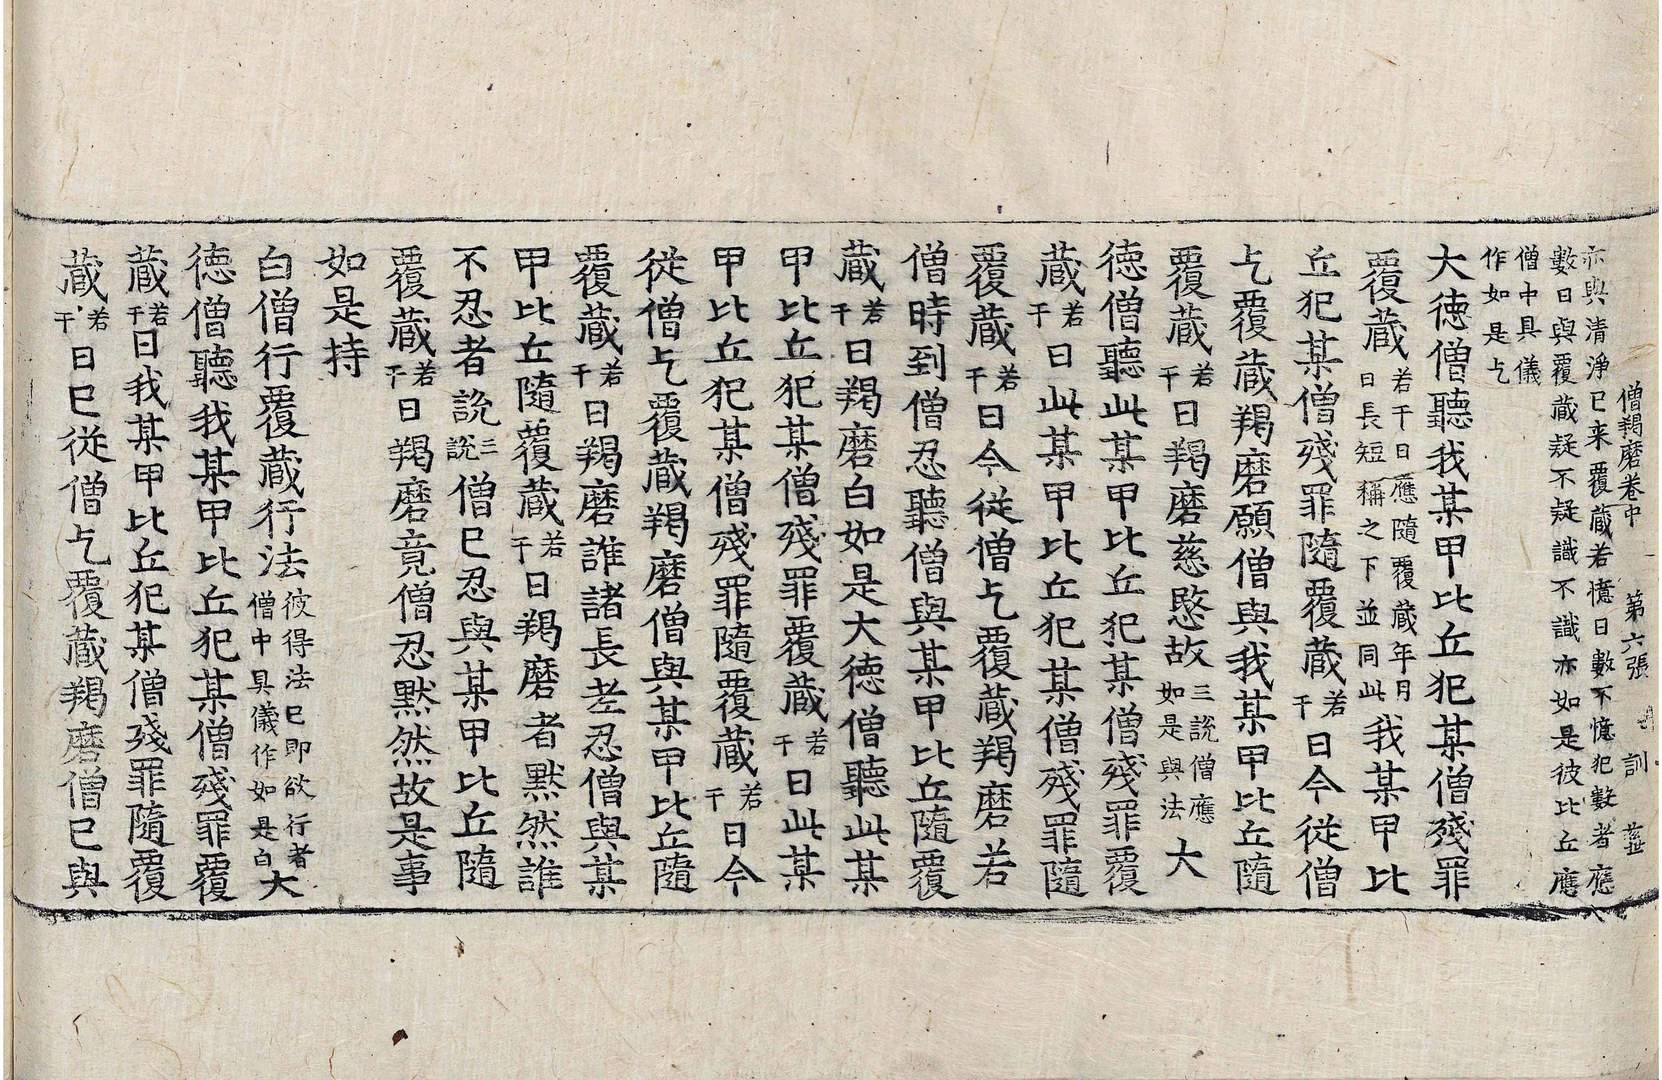 僧羯磨卷中 第六張 訓
亦與清淨已来覆蔵若憶日數不憶犯數者應
數日與覆蔵疑不疑識不識亦如是彼比丘應
僧中具儀
作如是乞
大德僧聽我某甲比丘犯某僧殘罪
覆蔵若干日應隨覆蔵年月日長短稱之下並同此我某甲比
丘犯某僧殘罪隨覆蔵若干日今從僧
乞覆蔵羯磨願僧與我某甲比丘隨
覆蔵若干日羯磨慈愍故三説僧應如是與法大
德僧聽此某甲比丘犯某僧殘罪覆
蔵若干日此某甲比丘犯某僧殘罪隨
覆蔵若干日今從僧乞覆蔵羯磨若
僧時到僧忍聽僧與某甲比丘隨覆
蔵若干日羯磨白如是大德僧聽此某
甲比丘犯某僧殘罪覆蔵若干日此某
甲比丘犯某僧殘罪隨覆蔵若干日今
從僧乞覆蔵羯磨僧與某甲比丘隨
覆蔵若干日羯磨誰諸長老忍僧與某
甲比丘隨覆蔵若干日羯磨者默然誰
不忍者説三説僧已忍與某甲比丘隨
覆蔵若干日羯磨竟僧忍默然故是事
如是持
白僧行覆蔵行法彼得法已即欲行者僧中具儀作如是白大
德僧聽我某甲比丘犯某僧殘罪覆
蔵若干日我某甲比丘犯某僧殘罪隨覆
蔵若干日已從僧乞覆蔵羯磨僧已與